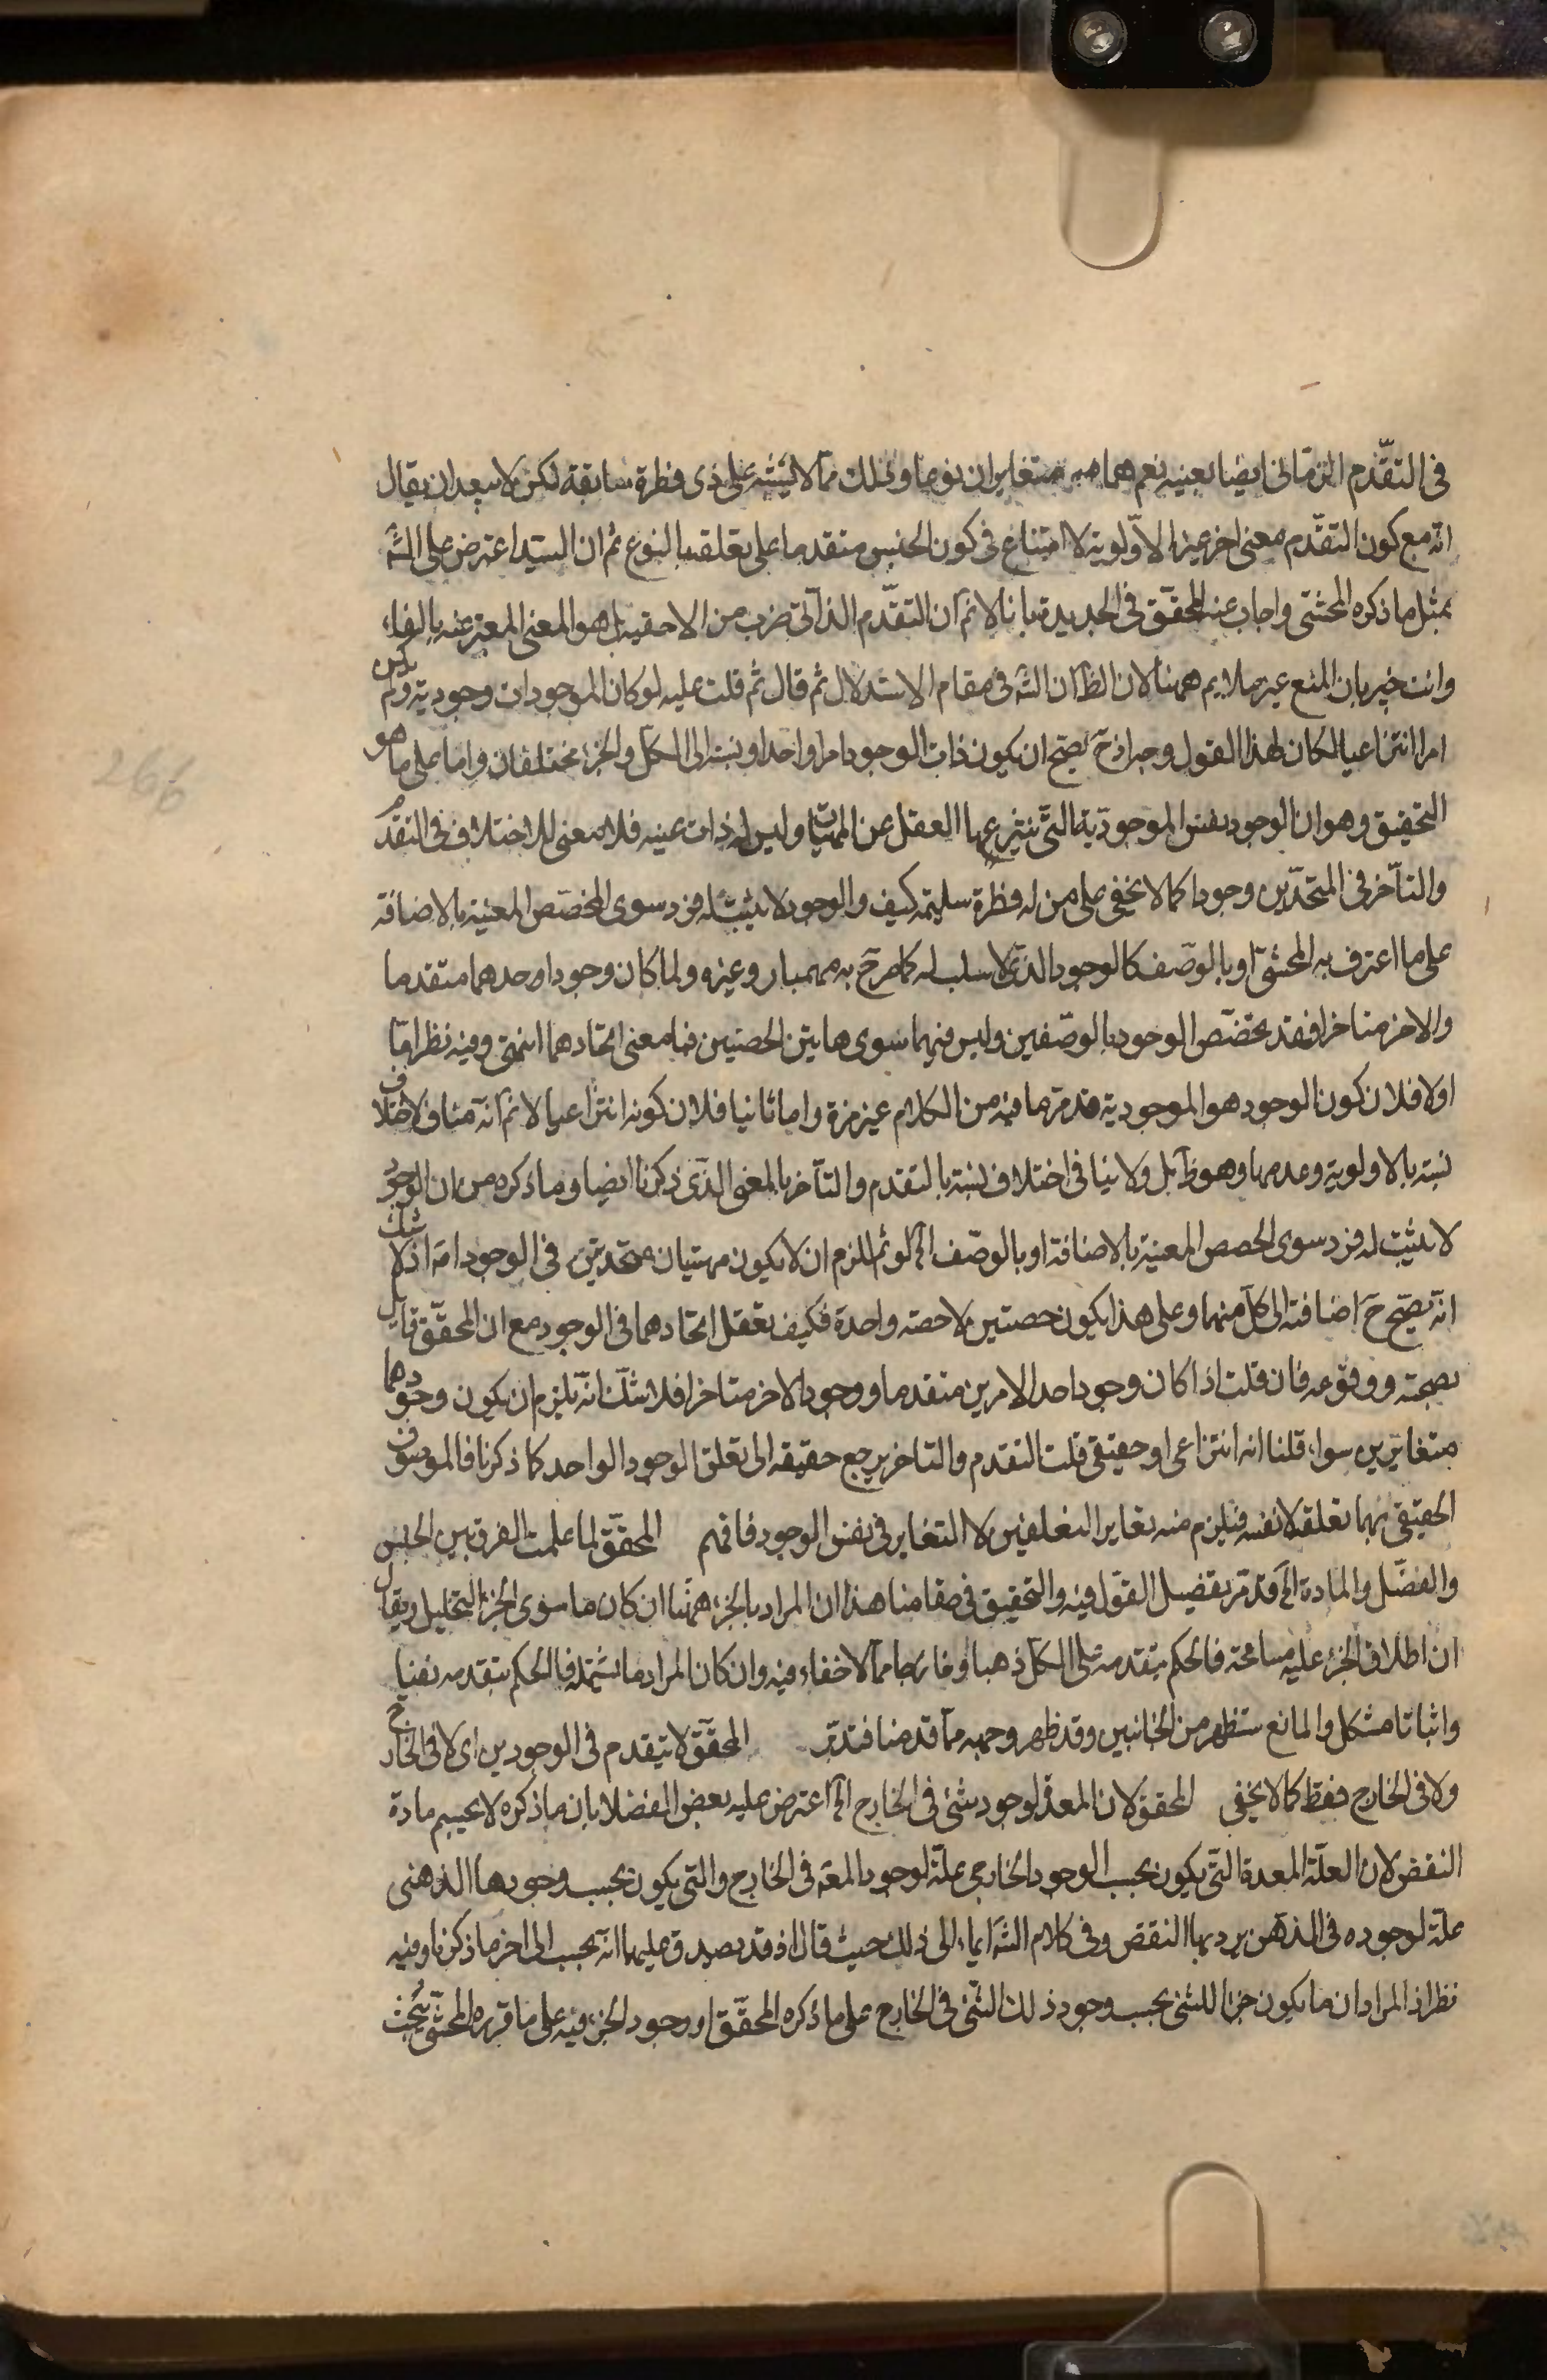 فى التقدّم الزمانى ايضا بعينه نعم هما متغايران نوعا وذلك مما لا يشتبه على ذى فطرة سابقة لكن لا يبعد ان يقال
انه مع كون التقدّم معنى اخر غير الاولوية لا امتناع فى كون الجنس متقدما على تعلقه بالنوع ثم ان السيد اعترض على الشّه
بمثل ما ذكره المحشى واجاب عنه المحقق فى الجديدة بانا لانم ان التقدّم الذاتى ضرب من الاحقية بل هو المعنى المعبر عنه بالفاء
وانت خبير بان المنع غير ملايم ههنا لان الظ ان الشّه فى مقام الاستدلال ثم قال ثم قلت عليه لو كان الموجودات وجودية ولم يكن
امرا انتزاعيا لكان لهذا القول وجه اذ ح يصح ان يكون ذات الوجود امرا واحدا ونسبته الى الكل والجزء مختلفان واما على ما هو
التحقيق وهو ان الوجود نفس الموجودية التى ينتزعها العقل عن المهيات وليس له ذات عينيه فلا معنى للاختلاف فى التقدم
والتاخر فى المتحدين وجودا كما لا يخفى على من له فطرة سليمة كيف والوجود لا يثبت له فرد سوى الحصص المعينة بالاضافة
على ما اعترف به المحشى او بالوصف كالوجود الذى لا سلب له كما صرح به بهمنيار وغيره ولما كان وجود احدهما متقدما
والاخر متاخرا فقد تخصص الوجود بالوصفين وليس فيهما سوى هاتين الحصتين فما معنى اتحادهما انتهى وفيه نظر اما
اولا فلان كون الوجود هو الموجودية قد مر ما فيه من الكلام غير مرة واما ثانيا فلان كونه انتزاعيا لانم انه مناف لاختلاف
نسبته بالاولوية وعدمها وهو ظ بل ولا ينافى اختلاف نسبته بالتقدم والتاخر بالمعنى الذى ذكرنا ايضا وما ذكره من ان الوجود
لا يثبت له فرد سوى الحصص المعينة بالاضافة او بالوصف الخ لو تم للزم ان لا يكون مهيتان متحدتين فى الوجود امة اذ لا شك
انه يصح ح اضافته الى كل منهما وعلى هذا يكون حصتين لا حصة واحدة فكيف تعقل اتحادهما فى الوجود مع ان المحقق قايل
بصحته ووقوعه فان قلت اذا كان وجود احد الامرين متقدما ووجود الاخر متاخرا فلا شك انه يلزم ان يكون وجودهما
متغايرين سواء قلنا انه انتزاعى او حقيقى قلت التقدم والتاخر يرجع حقيقه الى تعلق الوجود الواحد كما ذكرنا فالموصوف
الحقيقى بهما تعلقه لا نفسه فيلزم منه تغاير التعلقين لا التغاير فى نفس الوجود فافهم المحقق لما علمت الفرق بين الجنس
والفصل والمادة الخ قد مر تفضيل القول فيه والتحقيق فى مقامنا هذا ان المراد بالجزء ههنا ان كان ما سوى الجزء التحليلى ويقال
ان اطلاق الجزء عليه مسامحة فالحكم بتقدمه على الكل ذهنا وخارجا مما لا خفاء فيه وان كان المراد ما يشمله فالحكم بتقدمه نفيا
واثباتا مشكل والمانع ستظهر من الجانبين وقد ظهر وجهه مما قدمنا فتدبر المحقق لا يتقدم فى الوجودين اى لا فى الخارج
ولا فى الخارج فقط كما لا يخفى المحقق لان المعد لوجود شئ فى الخارج الخ اعترض عليه بعض الفضلا بان ما ذكره لا يحسم مادة
النقض لان العلة المعدة التى يكون بحسب الوجود الخارجى علة لوجود المعد فى الخارج والتى يكون بحسب وجودها الذهنى
علة لوجوده فى الذهن يرد بها النقض وفى كلام الشّه ايماء الى ذلك حيث قال اذ قد يصدق عليها انه يجب الى اخر ما ذكرنا وفيه
نظر اذ المراد ان ما يكون جزا للشئ يجب وجود ذلك الشئ فى الخارج على ما ذكره المحقق او وجود الجزء فيه على ما قرره المحشى بحث
266